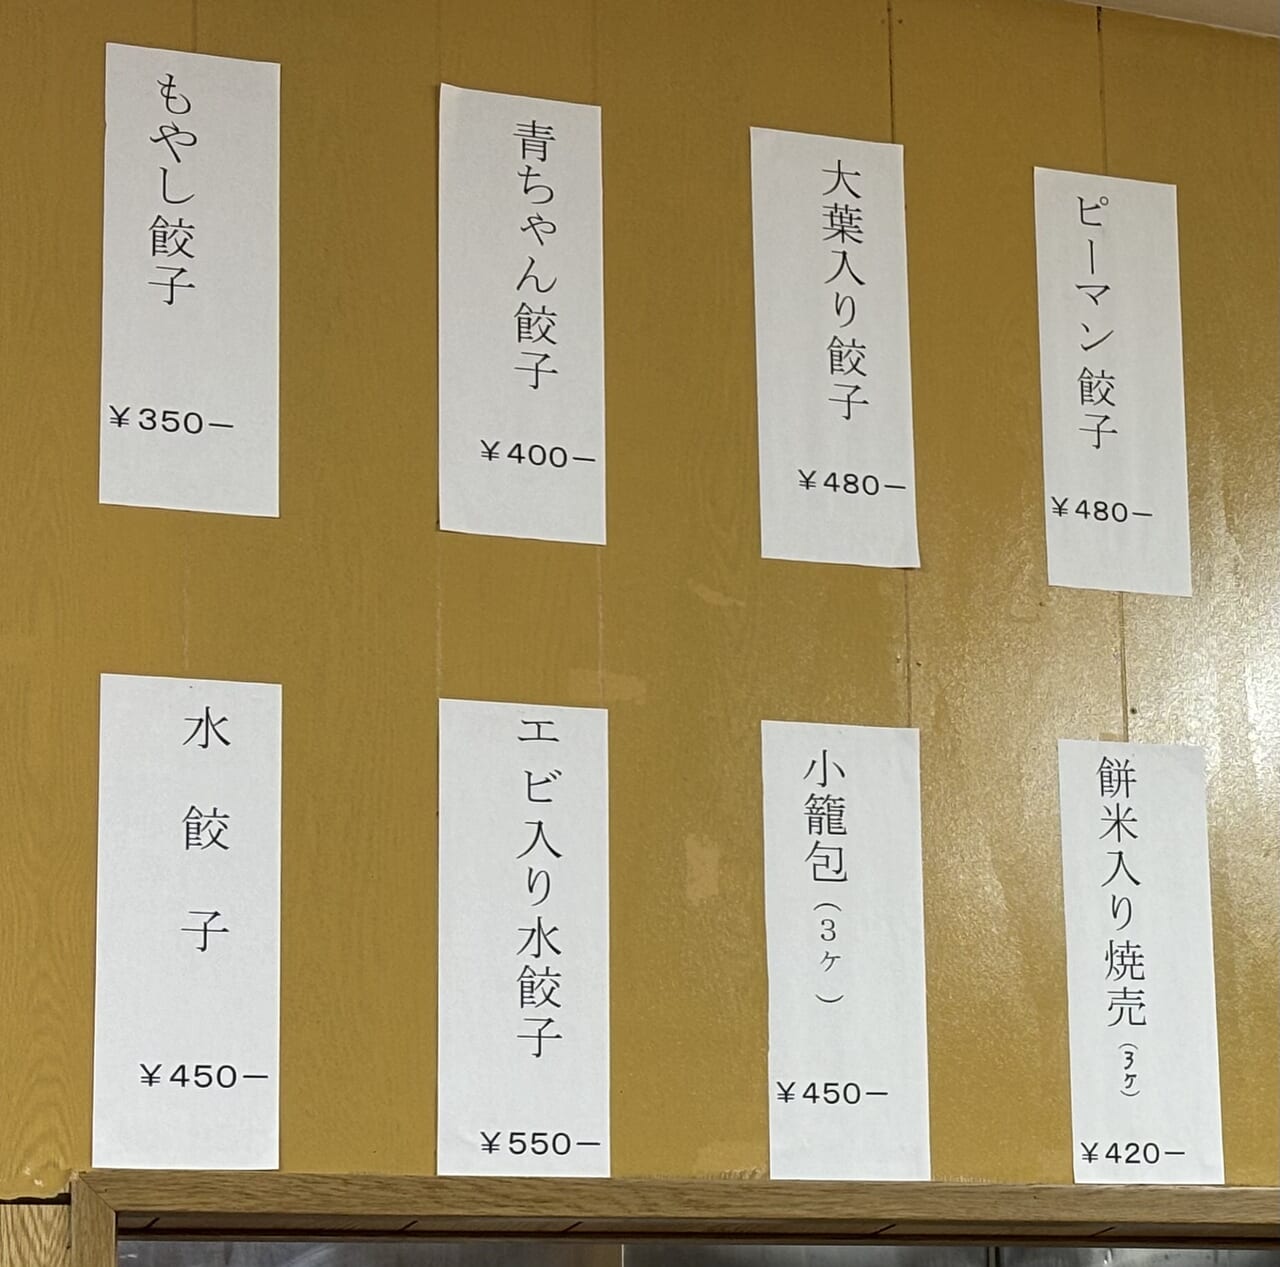 もやし餃子
￥350－
青ちゃん餃子
￥400－
大葉入り餃子
￥480－
ピーマン餃子
￥480－
水餃子
￥450－
エビ入り水餃子
￥550－
小籠包（3ヶ）
￥450－
餅米入り焼売（3ヶ）
￥420－